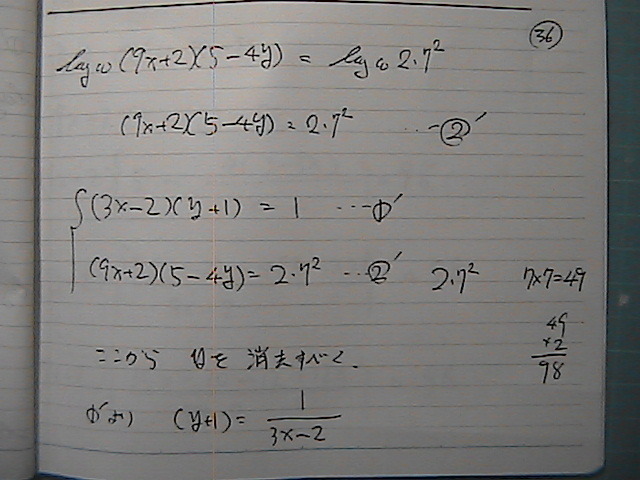 ㊱
log₁₀(9x+2)(5-4y) = log₁₀2·7²
(9x+2)(5-4y)=2·7² ...②′
(3x-2)(y+1) = 1 ...①′
(9x+2)(5-4y)=2·7² ...②′ 2·7² 7×7=49
49
×2
98
ここから yを 消去すべく、
①′より (y+1)= 1/(3x-2)